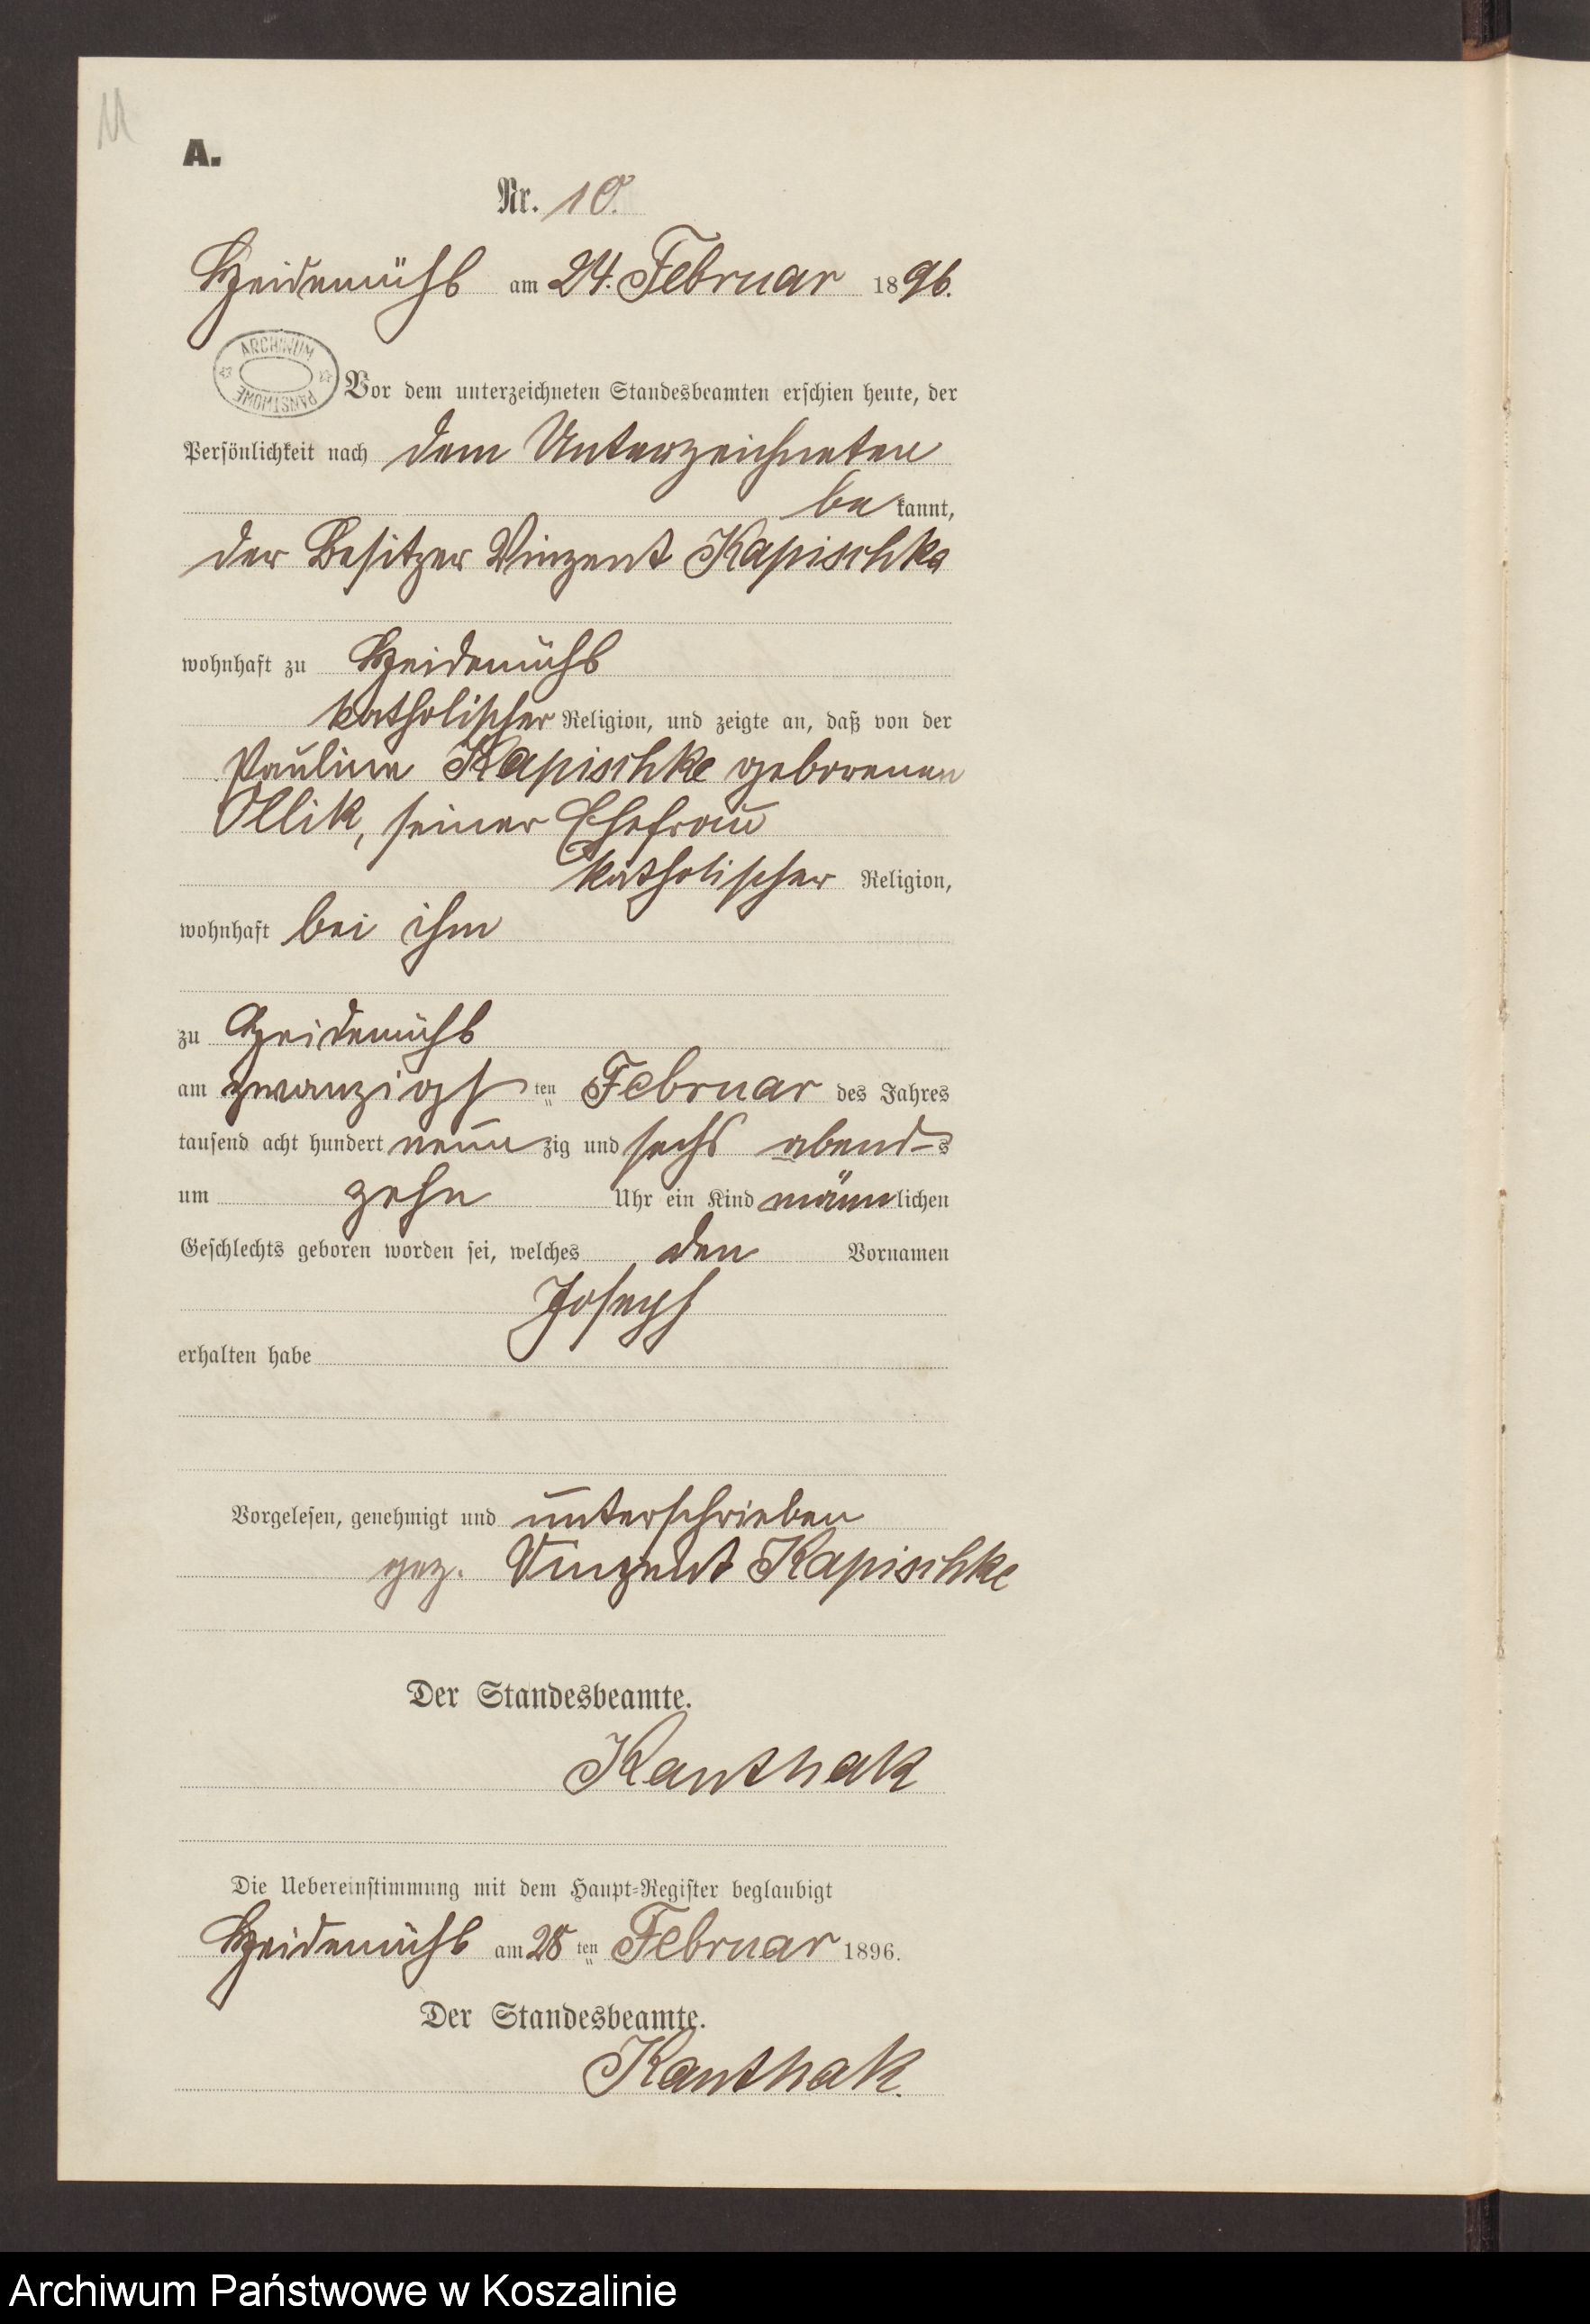 11
A.
Nr. 10.
Heidemühl am 24. Februar 1896.
ARCHIWUM PAŃSTWOWE
Vor dem unterzeichneten Standesbeamten erschien heute, der
Persönlichkeit nach dem Unterzeichneten
be kannt,
der Besitzer Vinzent Kapischke
wohnhaft zu Heidemühl
katholischer Religion, und zeigte an, daß von der
Pauline Kapischke geborenen
Ollik, seiner Ehefrau
katholischer Religion,
wohnhaft bei ihm
zu Heidemühl
am zwanzigs ten Februar des Jahres
tausend acht hundert neun zig und sechs abend s
um zehn Uhr ein Kind männ lichen
Geschlechts geboren worden sei, welches den Vornamen
Joseph
erhalten habe
Vorgelesen, genehmigt und unterschrieben
gez. Vinzent Kapischke
Der Standesbeamte.
Kanthak
Die Uebereinstimmung mit dem Haupt-Register beglaubigt
Heidemühl am 28 ten Februar 1896.
Der Standesbeamte.
Kanthak.
Archiwum Państwowe w Koszalinie